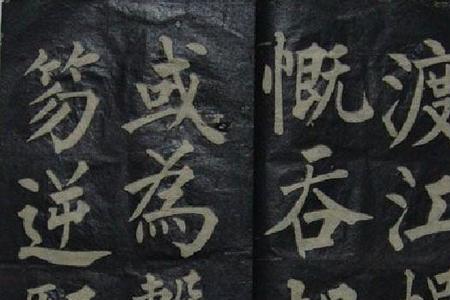 渡江
慨吞
或為
笏逆